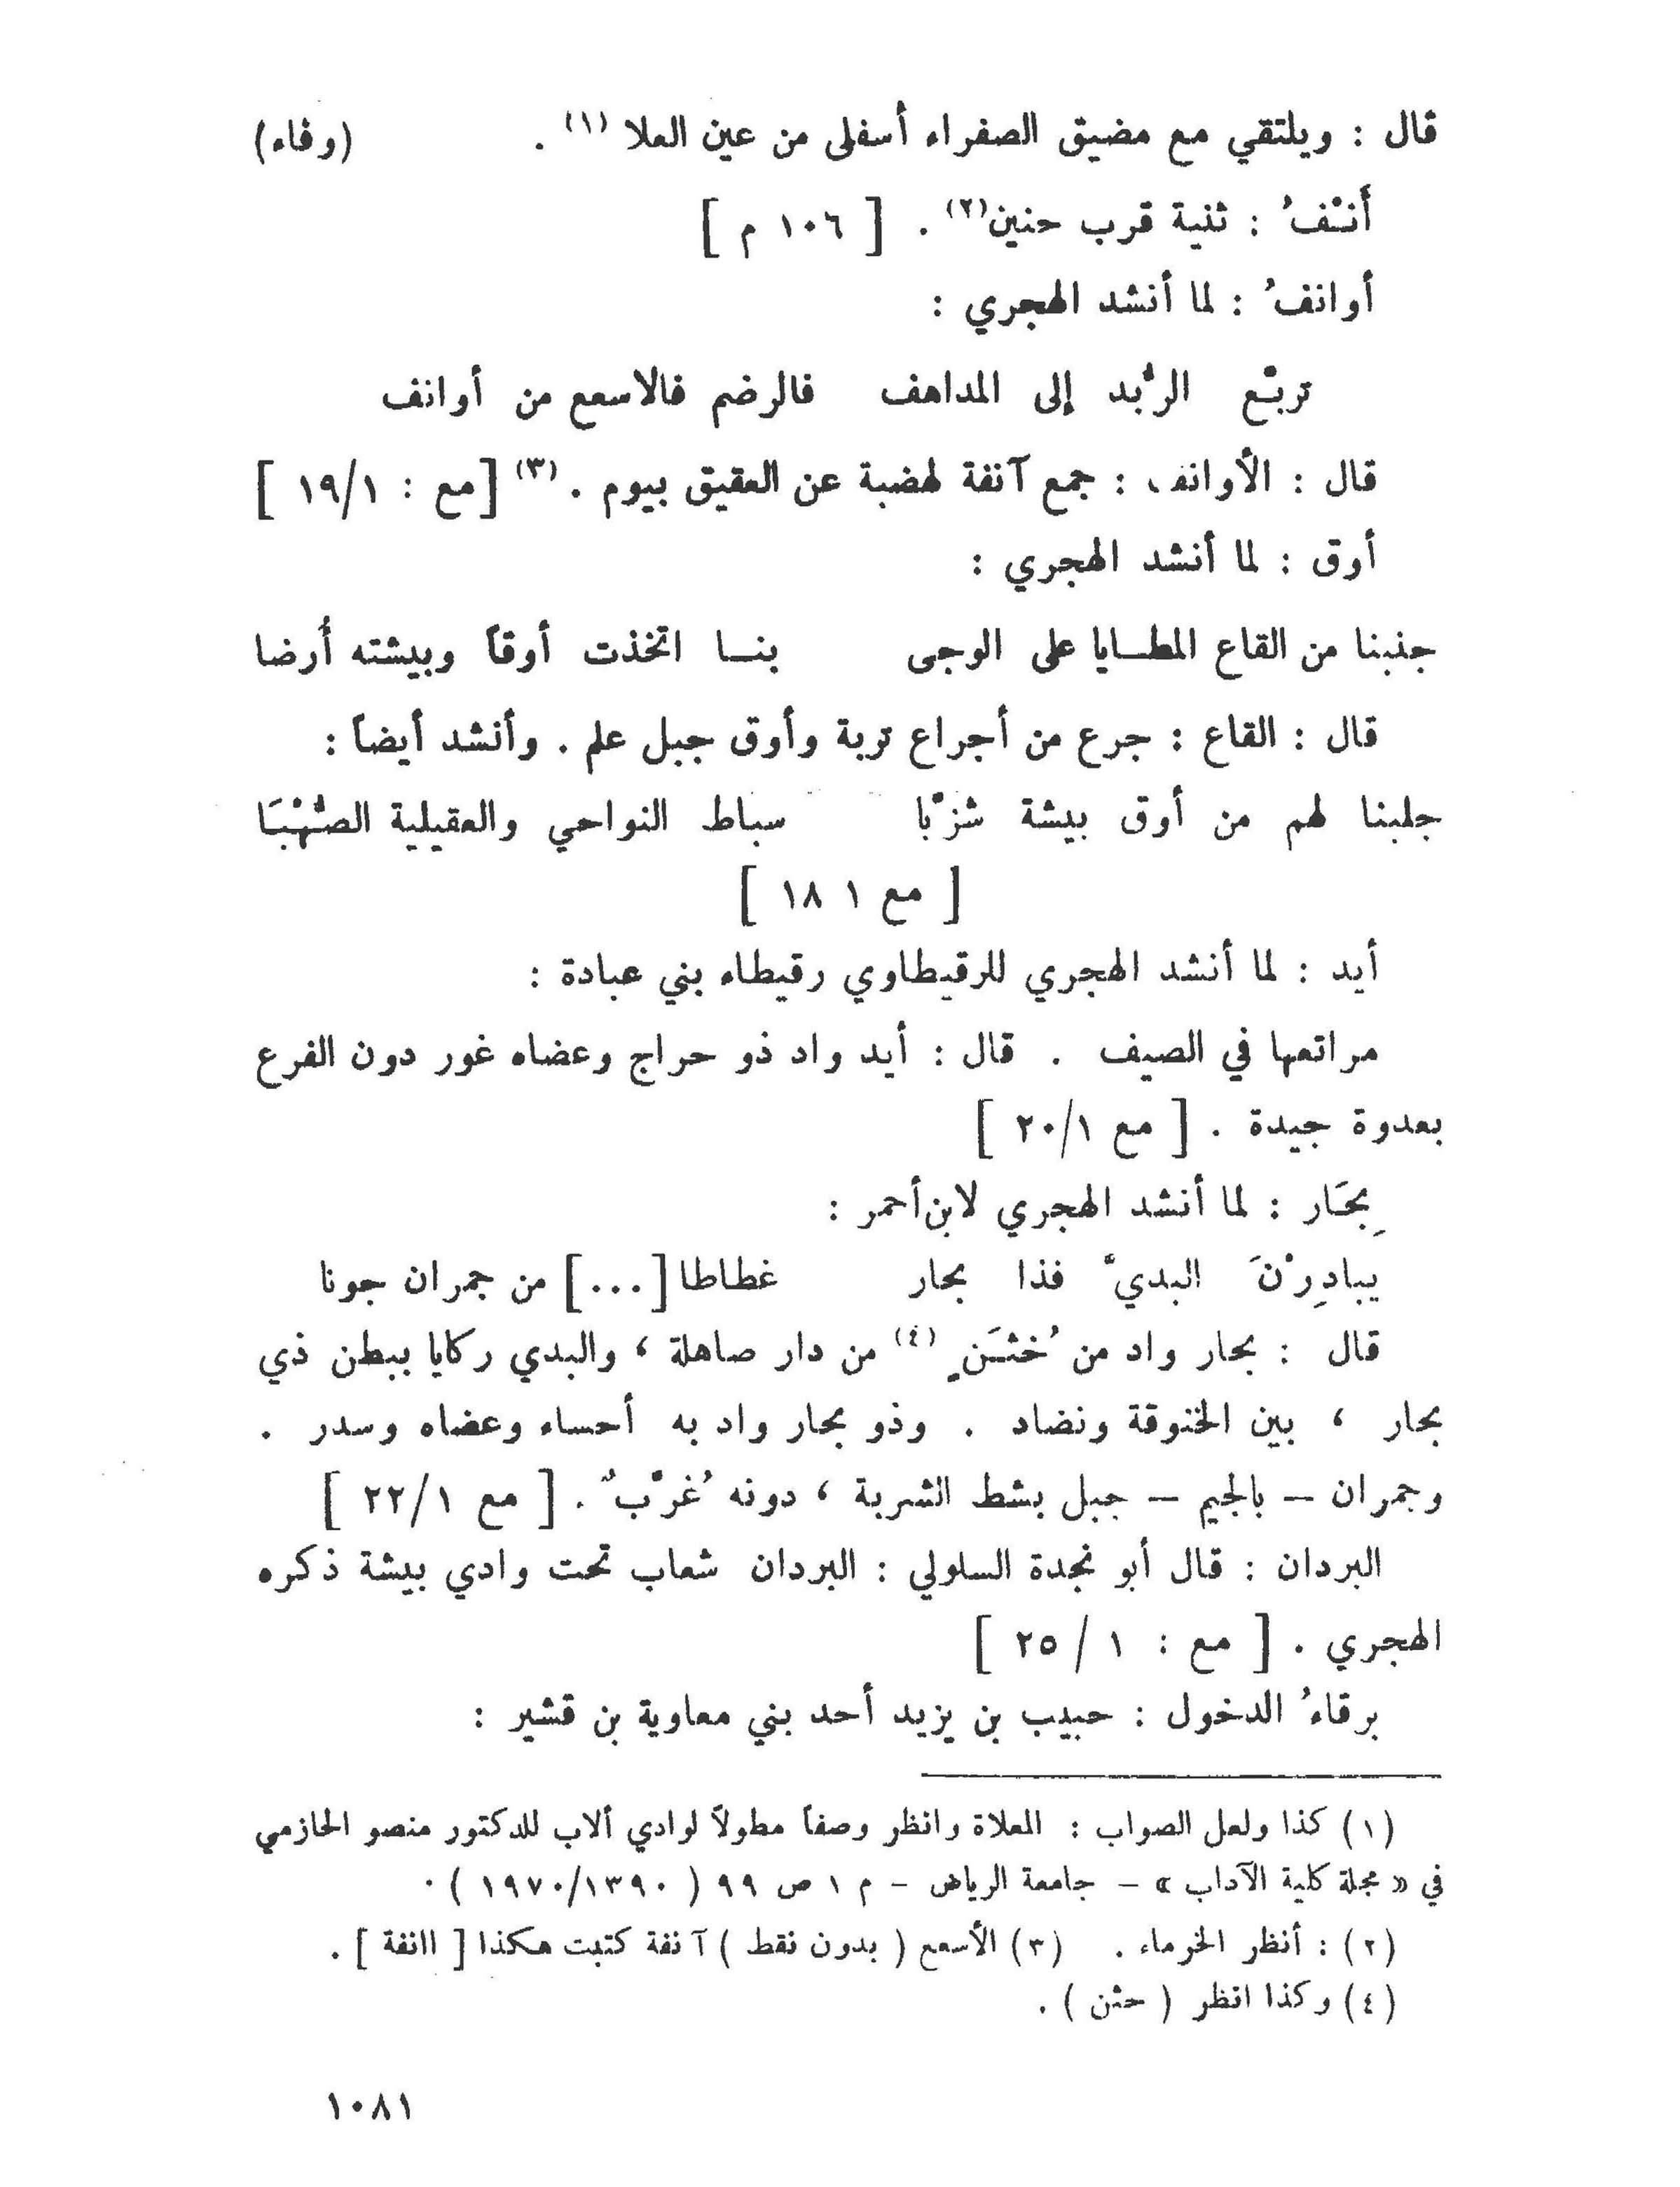 قال : ويلتقي مع مضيق الصفراء أسفلى من عين العلا (١) . (وفاء)
أَنْفُ : ثنية قرب حنين(٢) . [ ١٠٦ م ]
أوانفُ : لما أنشد الهجري :
تربّع الرُّبد إلى المداهف فالرضم فالاسعع من أوانف
قال : الأوانف : جمع آنفة لهضبة عن العقيق بيوم . (٣) [مع : ١٩/١ ]
أوق : لما أنشد الهجري :
جذبنا من القاع المطايا على الوجى بنا اتخذت أوقاً وبيشته أُرضا
قال : القاع : جرع من أجراع تربة وأوق جبل علم . وأنشد أيضاً :
جلبنا لهم من أوق بيشة شزّبا سباط النواحي والعقيلية الصُّهْبَا
[ مع ١ ١٨ ]
أيد : لما أنشد الهجري للرقيطاوي رقيطاء بني عبادة :
مراتعها في الصيف . قال : أيد واد ذو حراج وعضاه غور دون الفرع
بعدوة جيدة . [ مع ٢٠/١ ]
بِحَار : لما أنشد الهجري لابن أحمر :
يبادِرْنَ البديَّ فذا بحار غطاطا [...] من جمران جونا
قال : بحار واد من خُثَنٍ (٤) من دار صاهلة ، والبدي ركايا ببطن ذي
بحار ، بين الخنوقة ونضاد . وذو بحار واد به أحساء وعضاه وسدر .
وجمران – بالجيم – جبل بشط الشربة ، دونه غُرَّبٌ . [ مع ٢٢/١ ]
البردان : قال أبو نجدة السلولي : البردان شعاب تحت وادي بيشة ذكره
الهجري . [ مع : ١ / ٢٥ ]
برقاءُ الدخول : حبيب بن يزيد أحد بني معاوية بن قشير :
(١) كذا ولعل الصواب : المعلاة وانظر وصفاً مطولاً لوادي ألاب للدكتور منصو الحازمي
في « مجلة كلية الآداب » – جامعة الرياض – م ١ ص ٩٩ ( ١٩٧٠/١٣٩٠ ) .
(٢) : أنظر الخرماء . (٣) الأسعع ( بدون نقط ) آ نفة كتبت هكذا [ اانفة ] .
(٤) وكذا انظر ( حثن ) .
١٠٨١